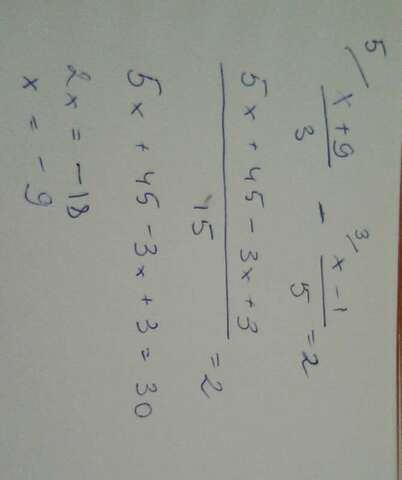 5/ x+9/3 - 3/ x-1/5 = 2
5x + 45 - 3x + 3 / 15 = 2
5x + 45 - 3x + 3 = 30
2x = -18
x = -9